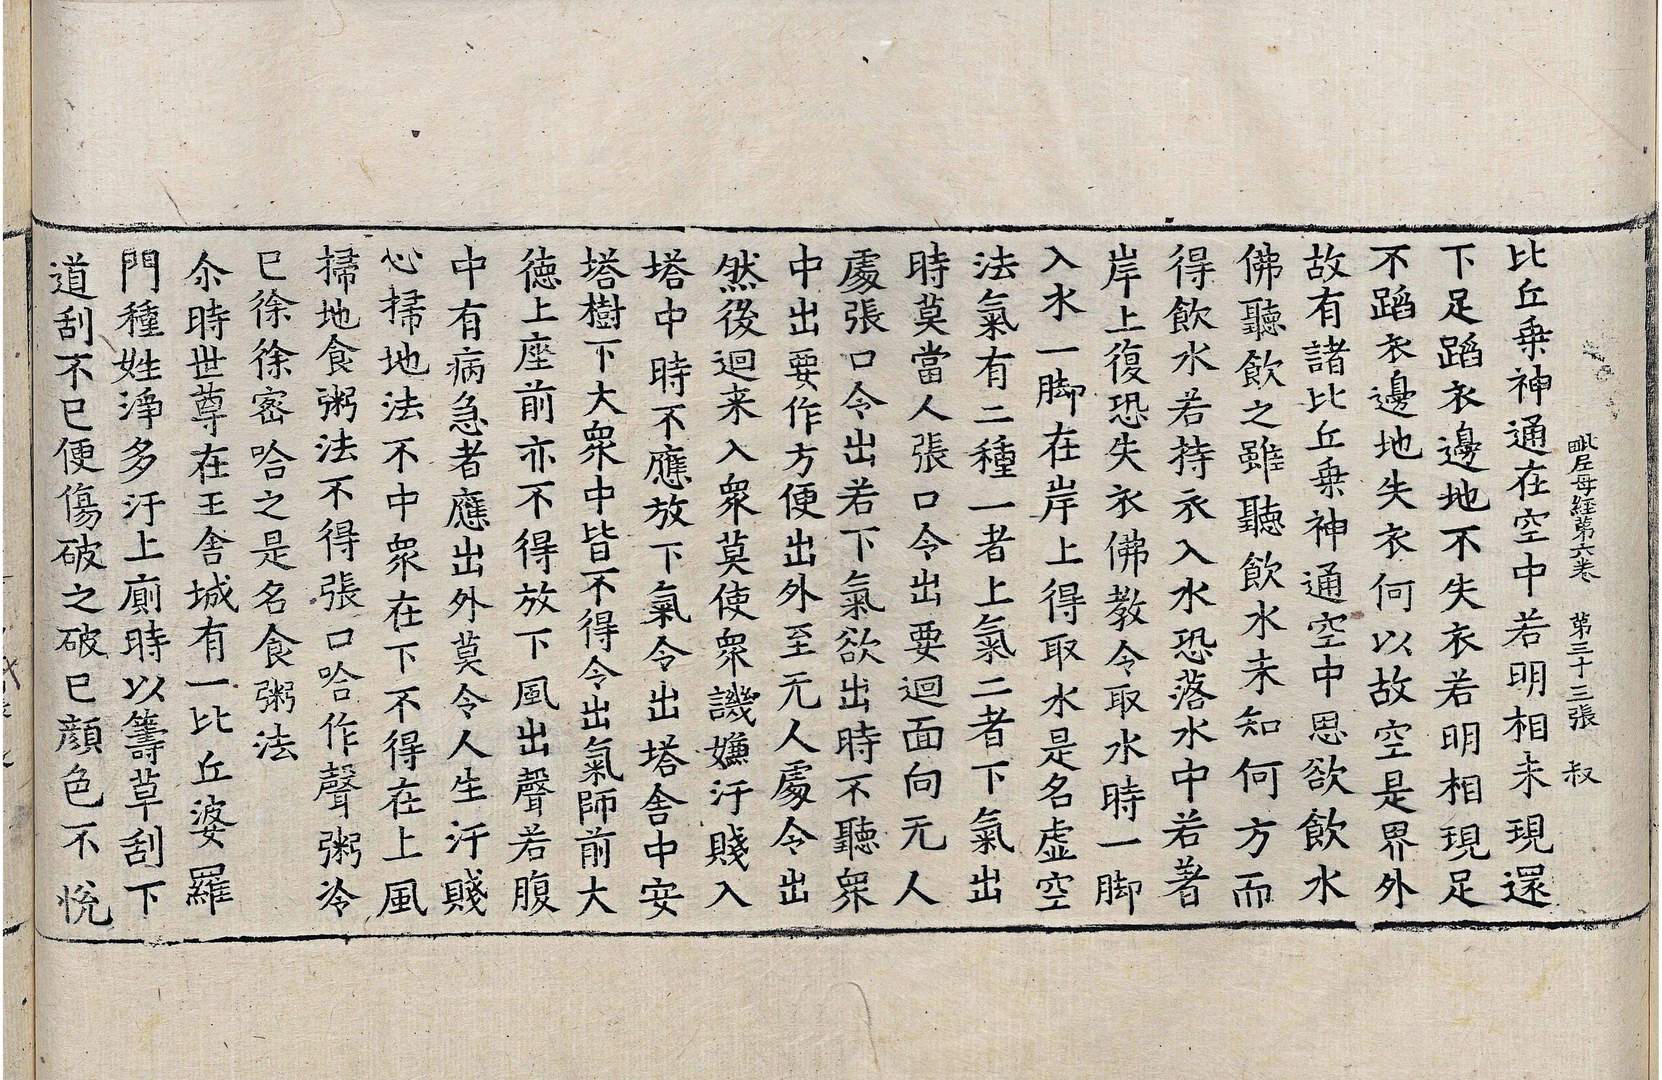 毗尼母經第六卷　第三十三張　叔
比丘乗神通在空中若明相未現還
下足蹈衣邊地不失衣若明相現足
不蹈衣邊地失衣何以故空是界外
故有諸比丘乗神通空中思欲飲水
佛聽飲之雖聽飲水未知何方而
得飲水若持衣入水恐落水中若著
岸上復恐失衣佛教令取水時一脚
入水一脚在岸上得取水是名虛空
法氣有二種一者上氣二者下氣出
時莫當人張口令出要迴面向无人
處張口令出若下氣欲出時不聽衆
中出要作方便出外至无人處令出
然後迴来入衆莫使衆譏嫌汙賤入
塔中時不應放下氣令出塔舍中安
塔樹下大衆中皆不得令出氣師前大
德上座前亦不得放下風出聲若腹
中有病急者應出外莫令人生汙賤
心掃地法不中衆在下不得在上風
掃地食粥法不得張口哈作聲粥冷
已徐徐密哈之是名食粥法
尒時世尊在王舍城有一比丘婆羅
門種姓淨多汙上廁時以籌草刮下
道刮不已便傷破之破已顏色不悅